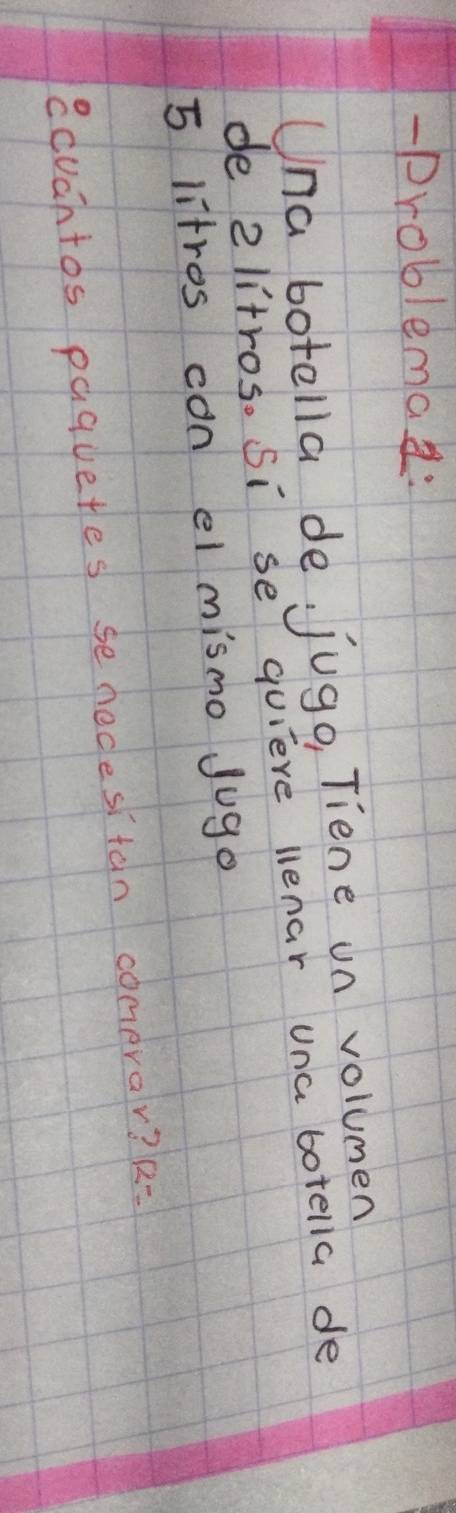 -Problema 1:
Una botella de jugo, Tiene un volumen
de 2 litros. Si se quiere llenar una botella de
5 litros con el mismo Jugo
¿cuántos paquetes se necesitan comprar? R=